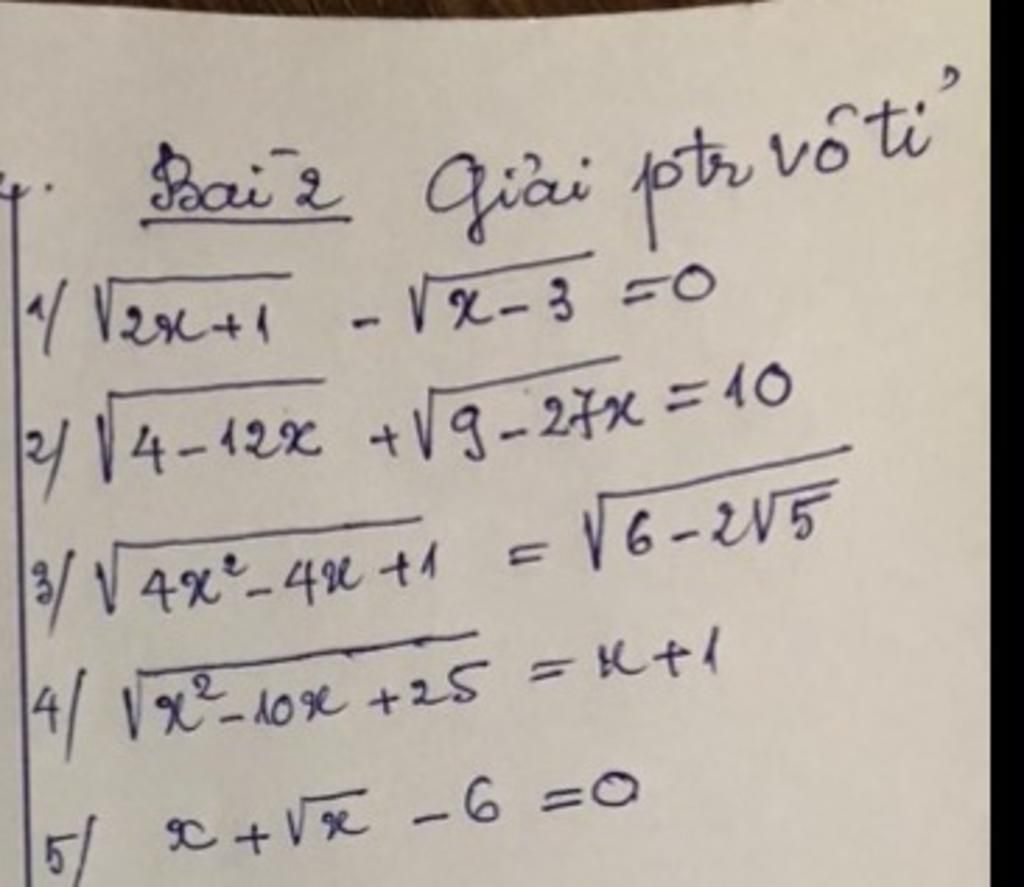 4. Bài 2 Giải ptr vô tỉ
1/ √(2x+1) - √(x-3) = 0
2/ √(4-12x) + √(9-27x) = 10
3/ √(4x²-4x+1) = √(6-2√5)
4/ √(x²-10x+25) = x+1
5/ x + √x - 6 = 0